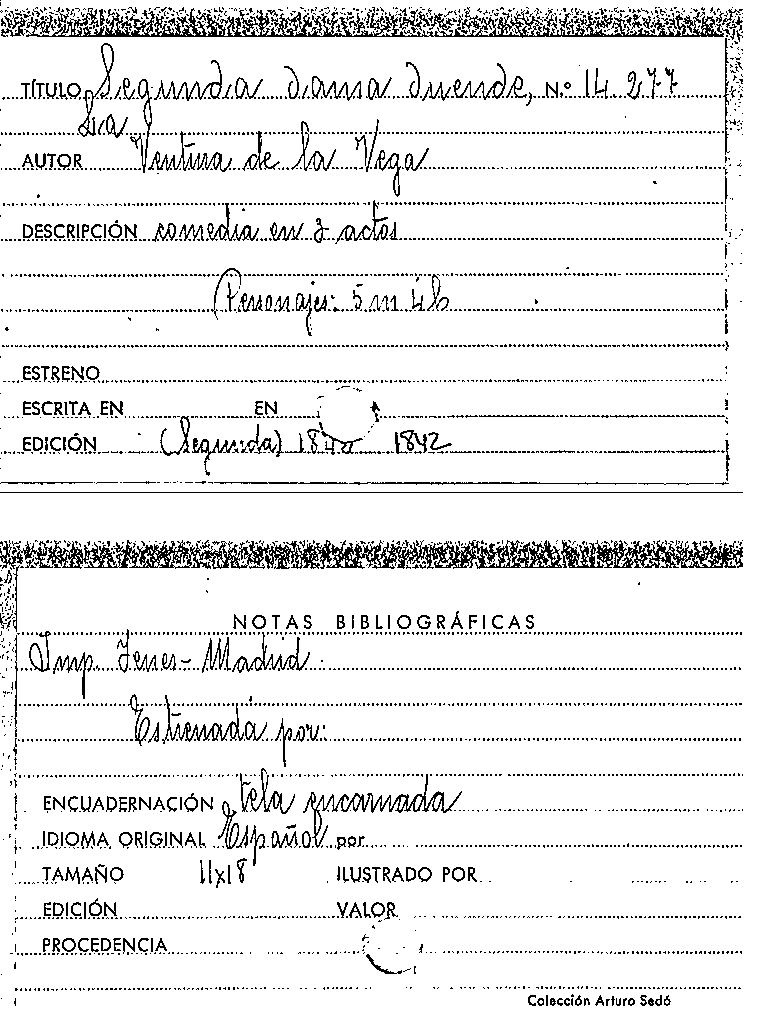 TÍTULO Segunda dama duende, N.º 14 277
La
AUTOR Ventura de la Vega
DESCRIPCIÓN comedia en 3 actos
Personajes: 5 m 4 h
ESTRENO
ESCRITA EN EN
EDICIÓN (Segunda) 1842
NOTAS BIBLIOGRÁFICAS
Imp Yenes - Madrid.
Estrenada por:
ENCUADERNACIÓN tela encarnada
IDIOMA ORIGINAL Español por
TAMAÑO 11x18 ILUSTRADO POR
EDICIÓN VALOR
PROCEDENCIA
Colección Arturo Sedó